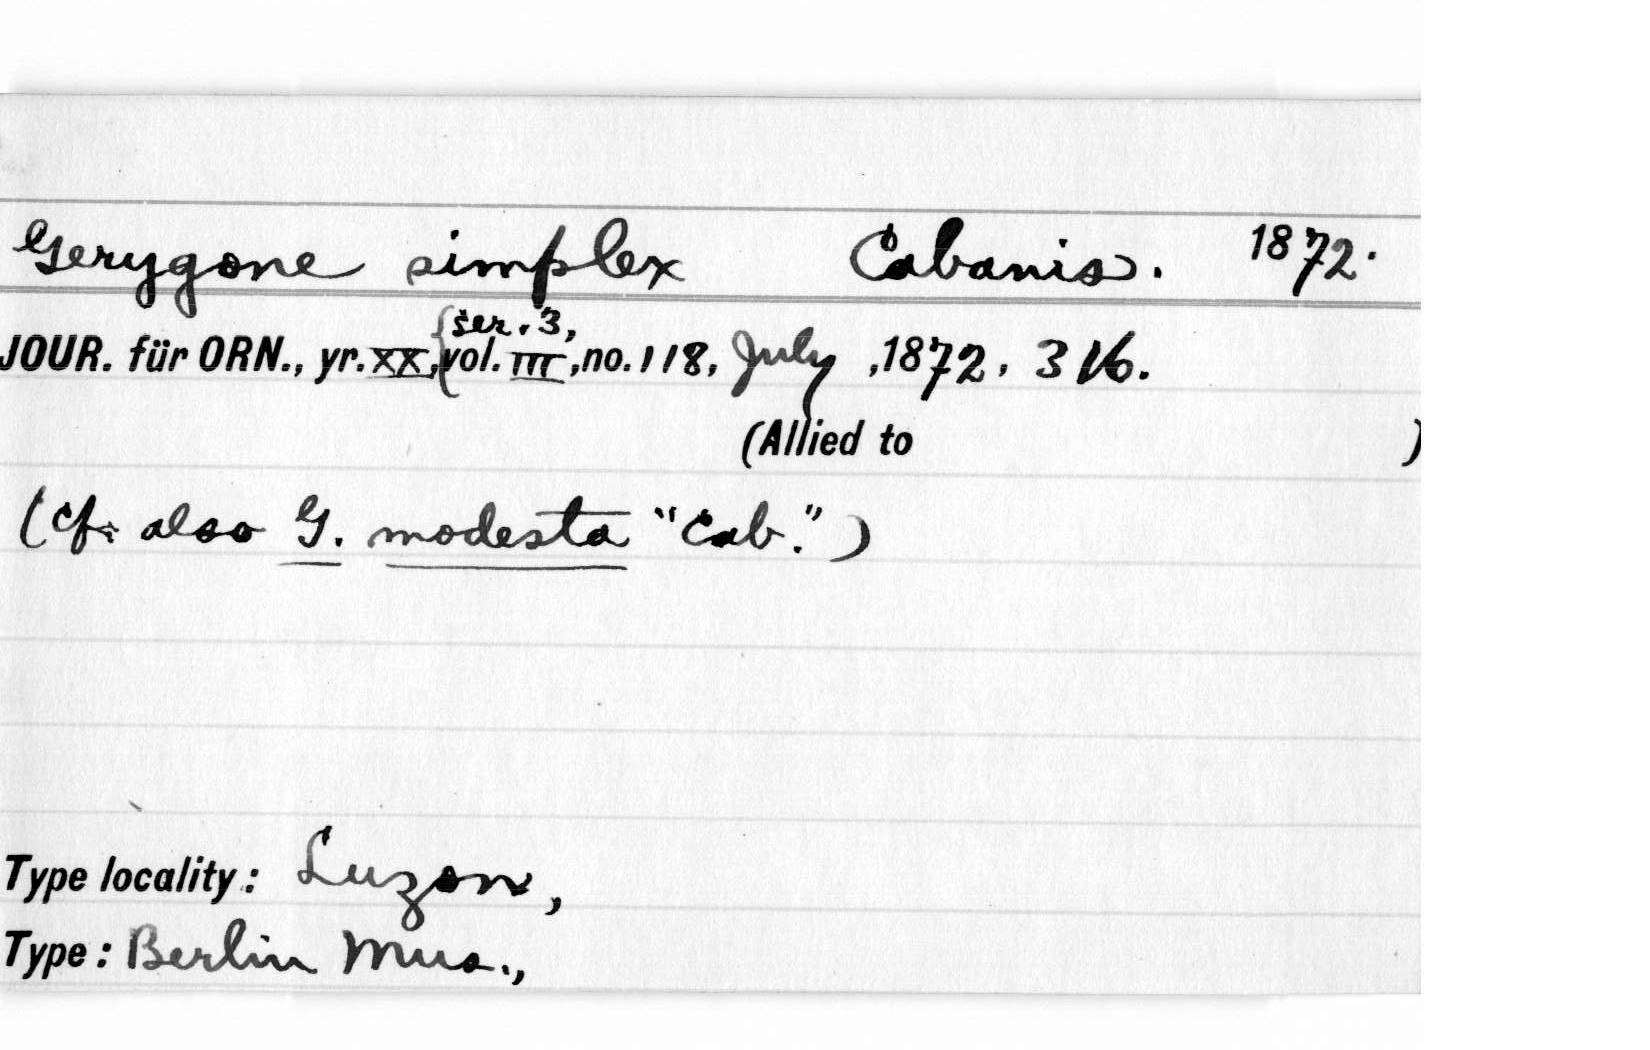 Gerygone simplex Cabanis. 1872.
ser. 3,
JOUR. für ORN., yr. XX, {vol. III, no. 118, July ,1872, 316.
(Allied to )
(Cf. also G. modesta "Cab.")
Type locality: Luzon,
Type: Berlin Mus.,